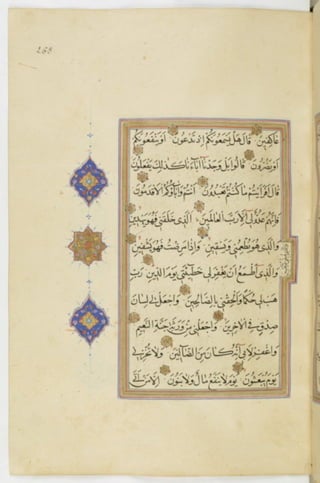 268
عاكفين قال هل يسمعونكم اذ تدعون او ينفعونكم
او يضرون قالوا بل وجدنا اباءنا كذلك يفعلون
قال افرايتم ما كنتم تعبدون انتم واباؤكم الاقدمون
فانهم عدو لي الا رب العالمين الذي خلقني فهو يهدين
والذي هو يطعمني ويسقين واذا مرضت فهو يشفين
والذي اطمع ان يغفر لي خطيئتي يوم الدين رب
هب لي حكما والحقني بالصالحين واجعل لي لسان
صدق في الاخرين واجعلني من ورثة جنة النعيم
واغفر لابي انه كان من الضالين ولا تخزني
يوم يبعثون يوم لا ينفع مال ولا بنون الا من اتى